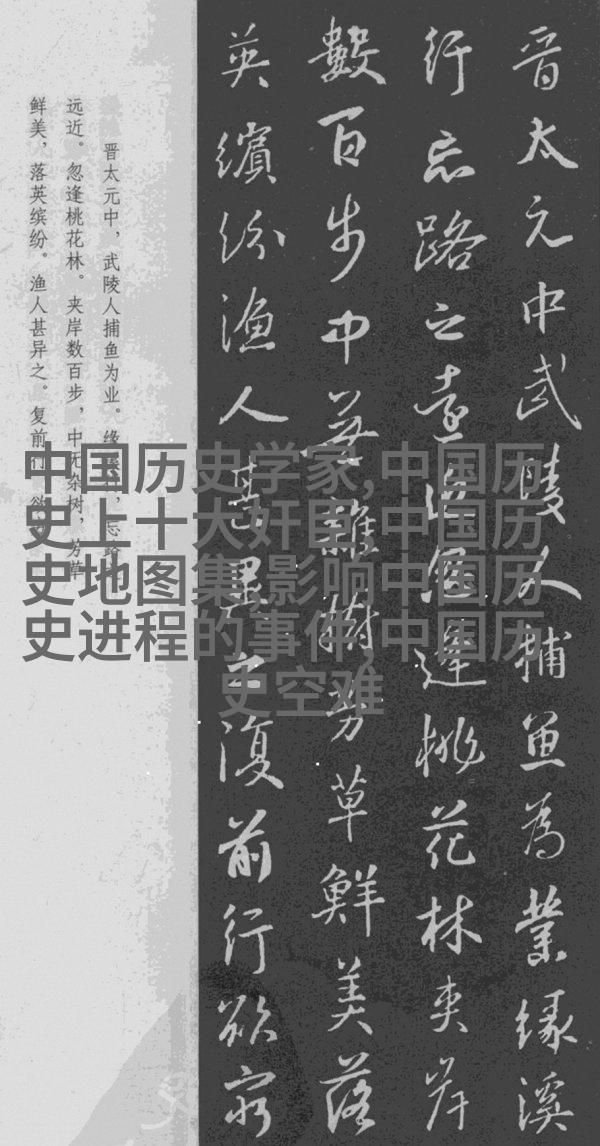 晋太元中武陵人捕鱼为業缘溪
行忘路之遠近忽逢桃花林夹岸
數百步中無雜樹芳草鮮美落
英繽纷渔人甚異之復前行欲窮
晋太元中，武陵人捕鱼为业。缘溪行，忘路之
远近。忽逢桃花林。夹岸数百步，中无杂树，芳草
鲜美，落英缤纷。渔人甚异之。复前行，欲
中国历史学家,中国历
史上十大奸臣,中国历
史地图集,影响中国历
史进程的事件,中国历
史空难